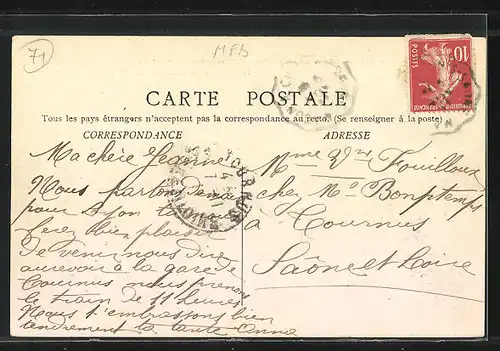 71
MFB
10
POSTES
CARTE POSTALE
Tous les pays étrangers n'acceptent pas la correspondance au recto. (Se renseigner à la poste)
CORRESPONDANCE
ADRESSE
Ma chère Jeanne
Nous partons demain
pour Lyon
ferez bien plaisir
De venir nous dire
au revoir à la gare de
Tournus nous prenons
le train de 11 heures
Nous t'embrassons bien
tendrement ta tante Anna
Mme Vve Fouilloux
chez Mr Bonptemps
à Tournus
Saône et Loire
TOURNUS